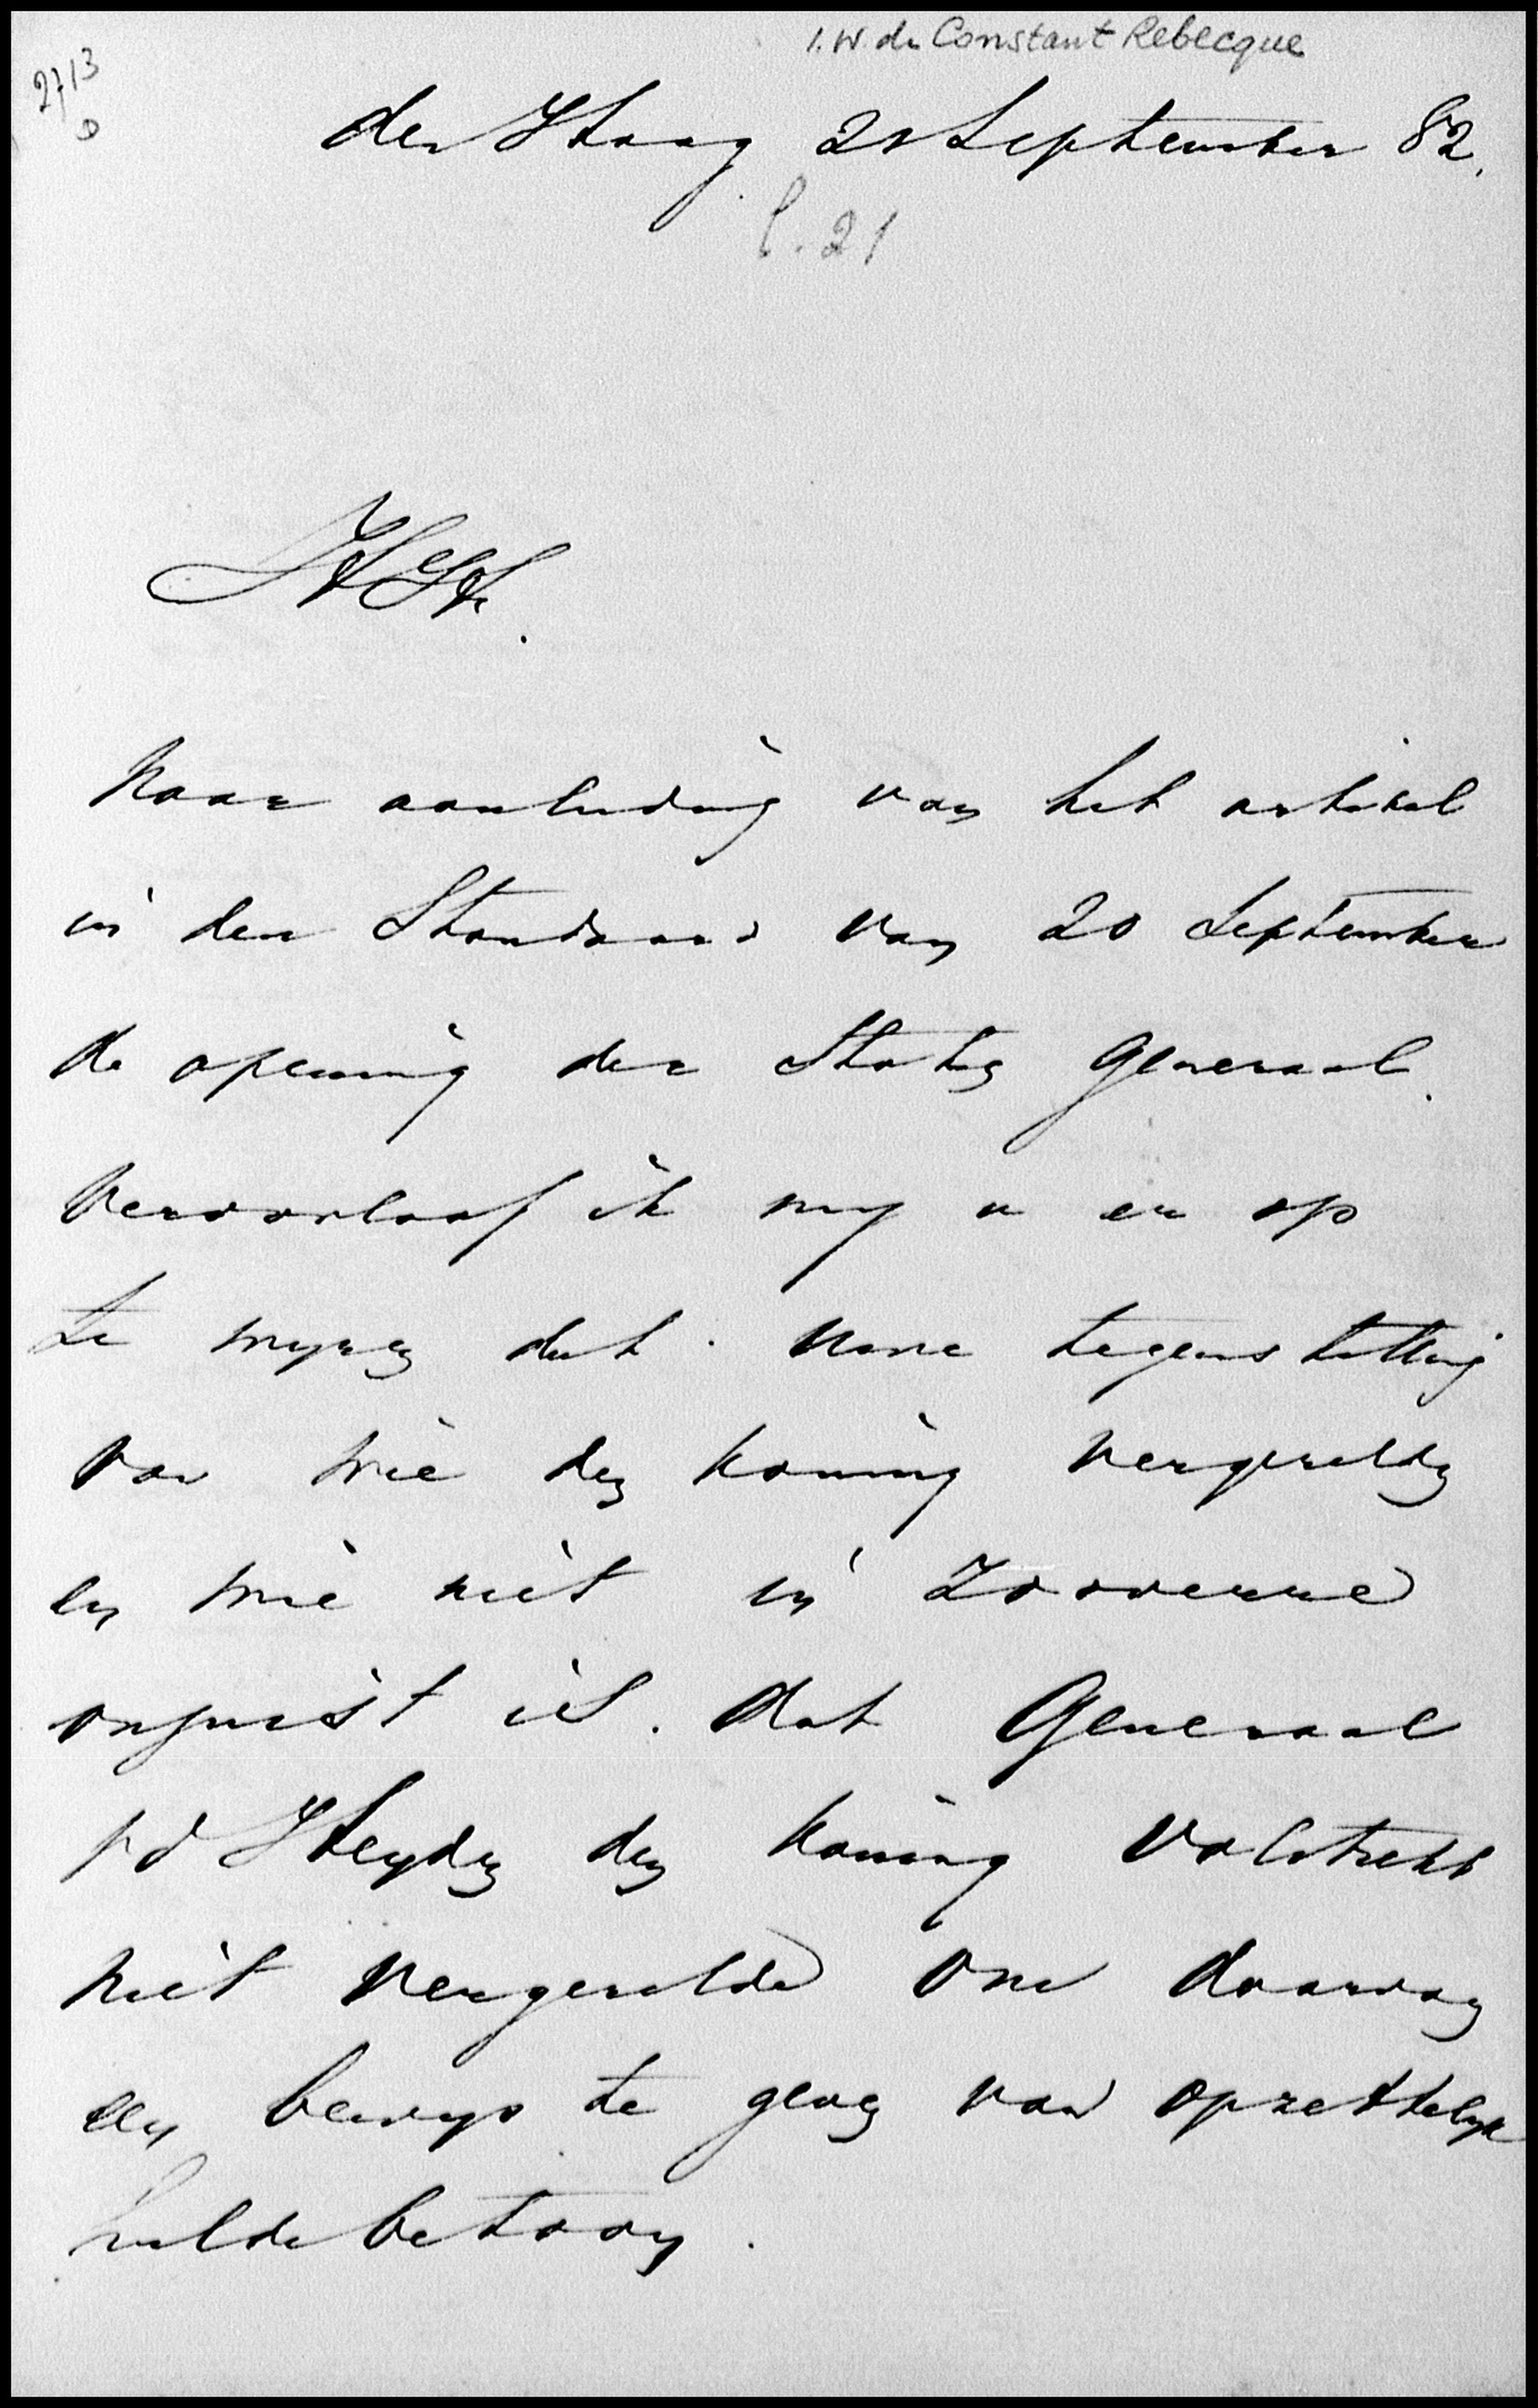 I. W. de Constant Rebecque
2713
den Haag 21 September 82.
l. 21
Naar aanleiding van het artikel
in den Standaard van 20 September
de opening der Staten Generaal.
Veroorloof ik my u er op
te wyzen dat Uwe tegenstelling
van wie den Koning vergezelden
en wie niet in zooverre
onjuist is. dat Generaal
vd Heyden den Koning volstrekt
niet vergezelde om daarvan
een bewys te geven van opzettelyk
huldebetoon.